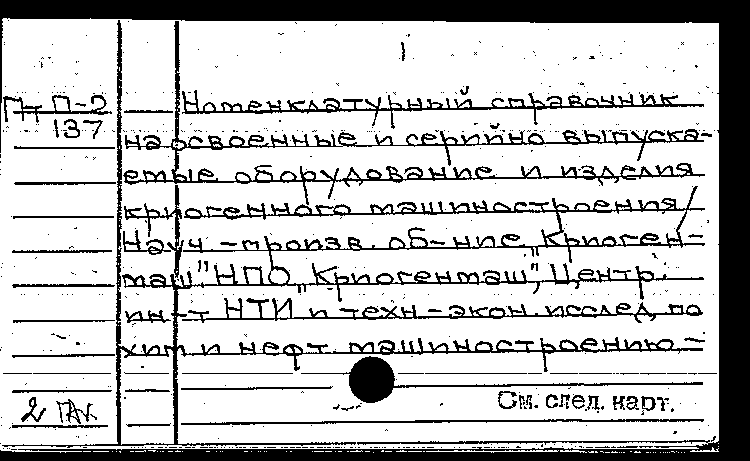 Пт П-2
137
Номенклатурный справочник
на освоенные и серийно выпуска-
емые оборудование и изделия
криогенного машиностроения /
Науч.-произв. об-ние „Криоген-
маш". НПО „Криогенмаш", Центр.
ин-т НТИ и техн-экон. исслед. по
хим и нефт. машиностроению.-
2
См. след. карт.